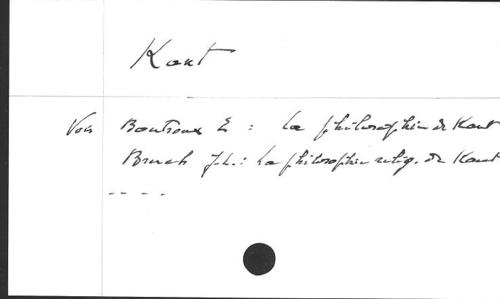 Kant
Voir Boutroux E : La philosophie de Kant
Bruch J.L.: La philosophie relig. de Kant
----